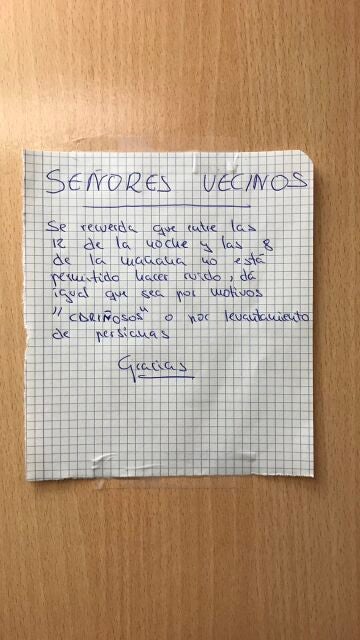 SEÑORES VECINOS
Se recuerda que entre las
12 de la noche y las 8
de la mañana no está
permitido hacer ruido, da
igual que sea por motivos
"CARIÑOSOS" o por levantamiento
de persianas
Gracias